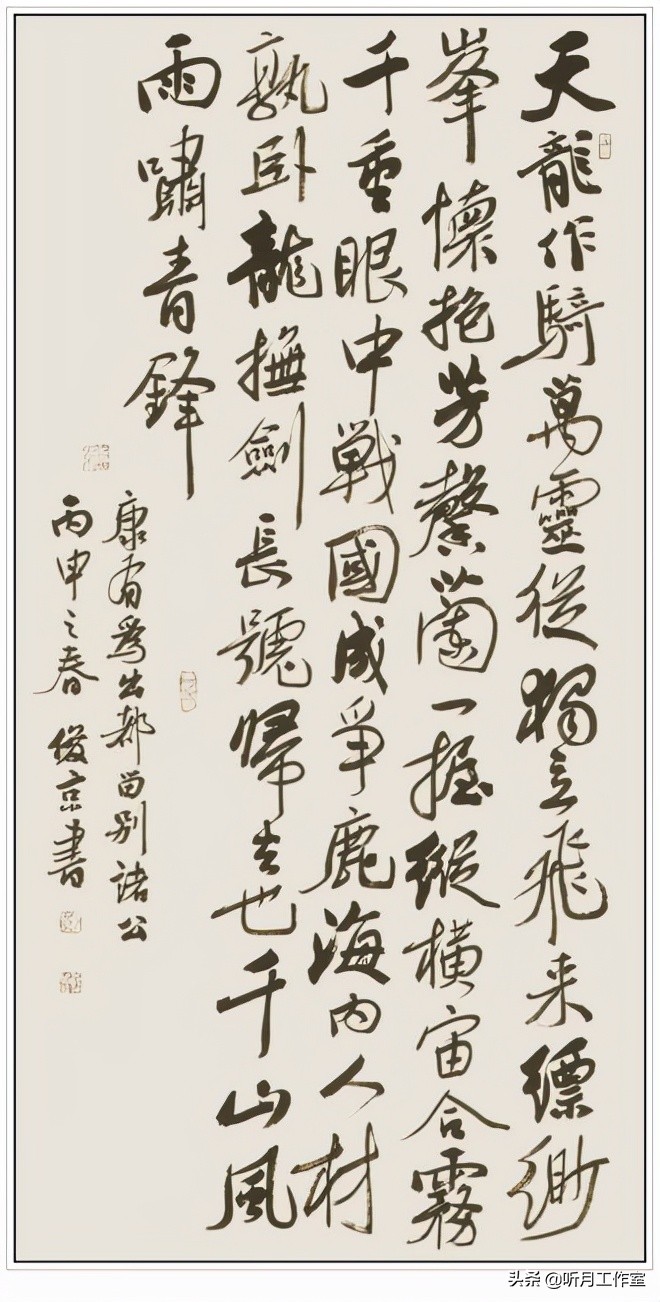 天龍作騎萬靈從獨立飛来縹緲
峯懷抱芳馨蘭一握縱橫宙合霧
千重眼中戰國成爭鹿海内人材
孰卧龍撫劍長號歸去也千山風
雨嘯青鋒
康有為出都留别諸公
丙申之春 俊京書
头条 @听月工作室